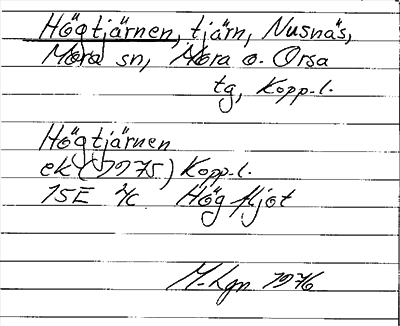 Högtjärnen, tjärn, Nusnäs,
Mora sn, Mora o. Orsa
tg, Kopp.l.
Högtjärnen
ek (1975) Kopp.l.
15E 2/c Högfljot
M-Lgn 1976